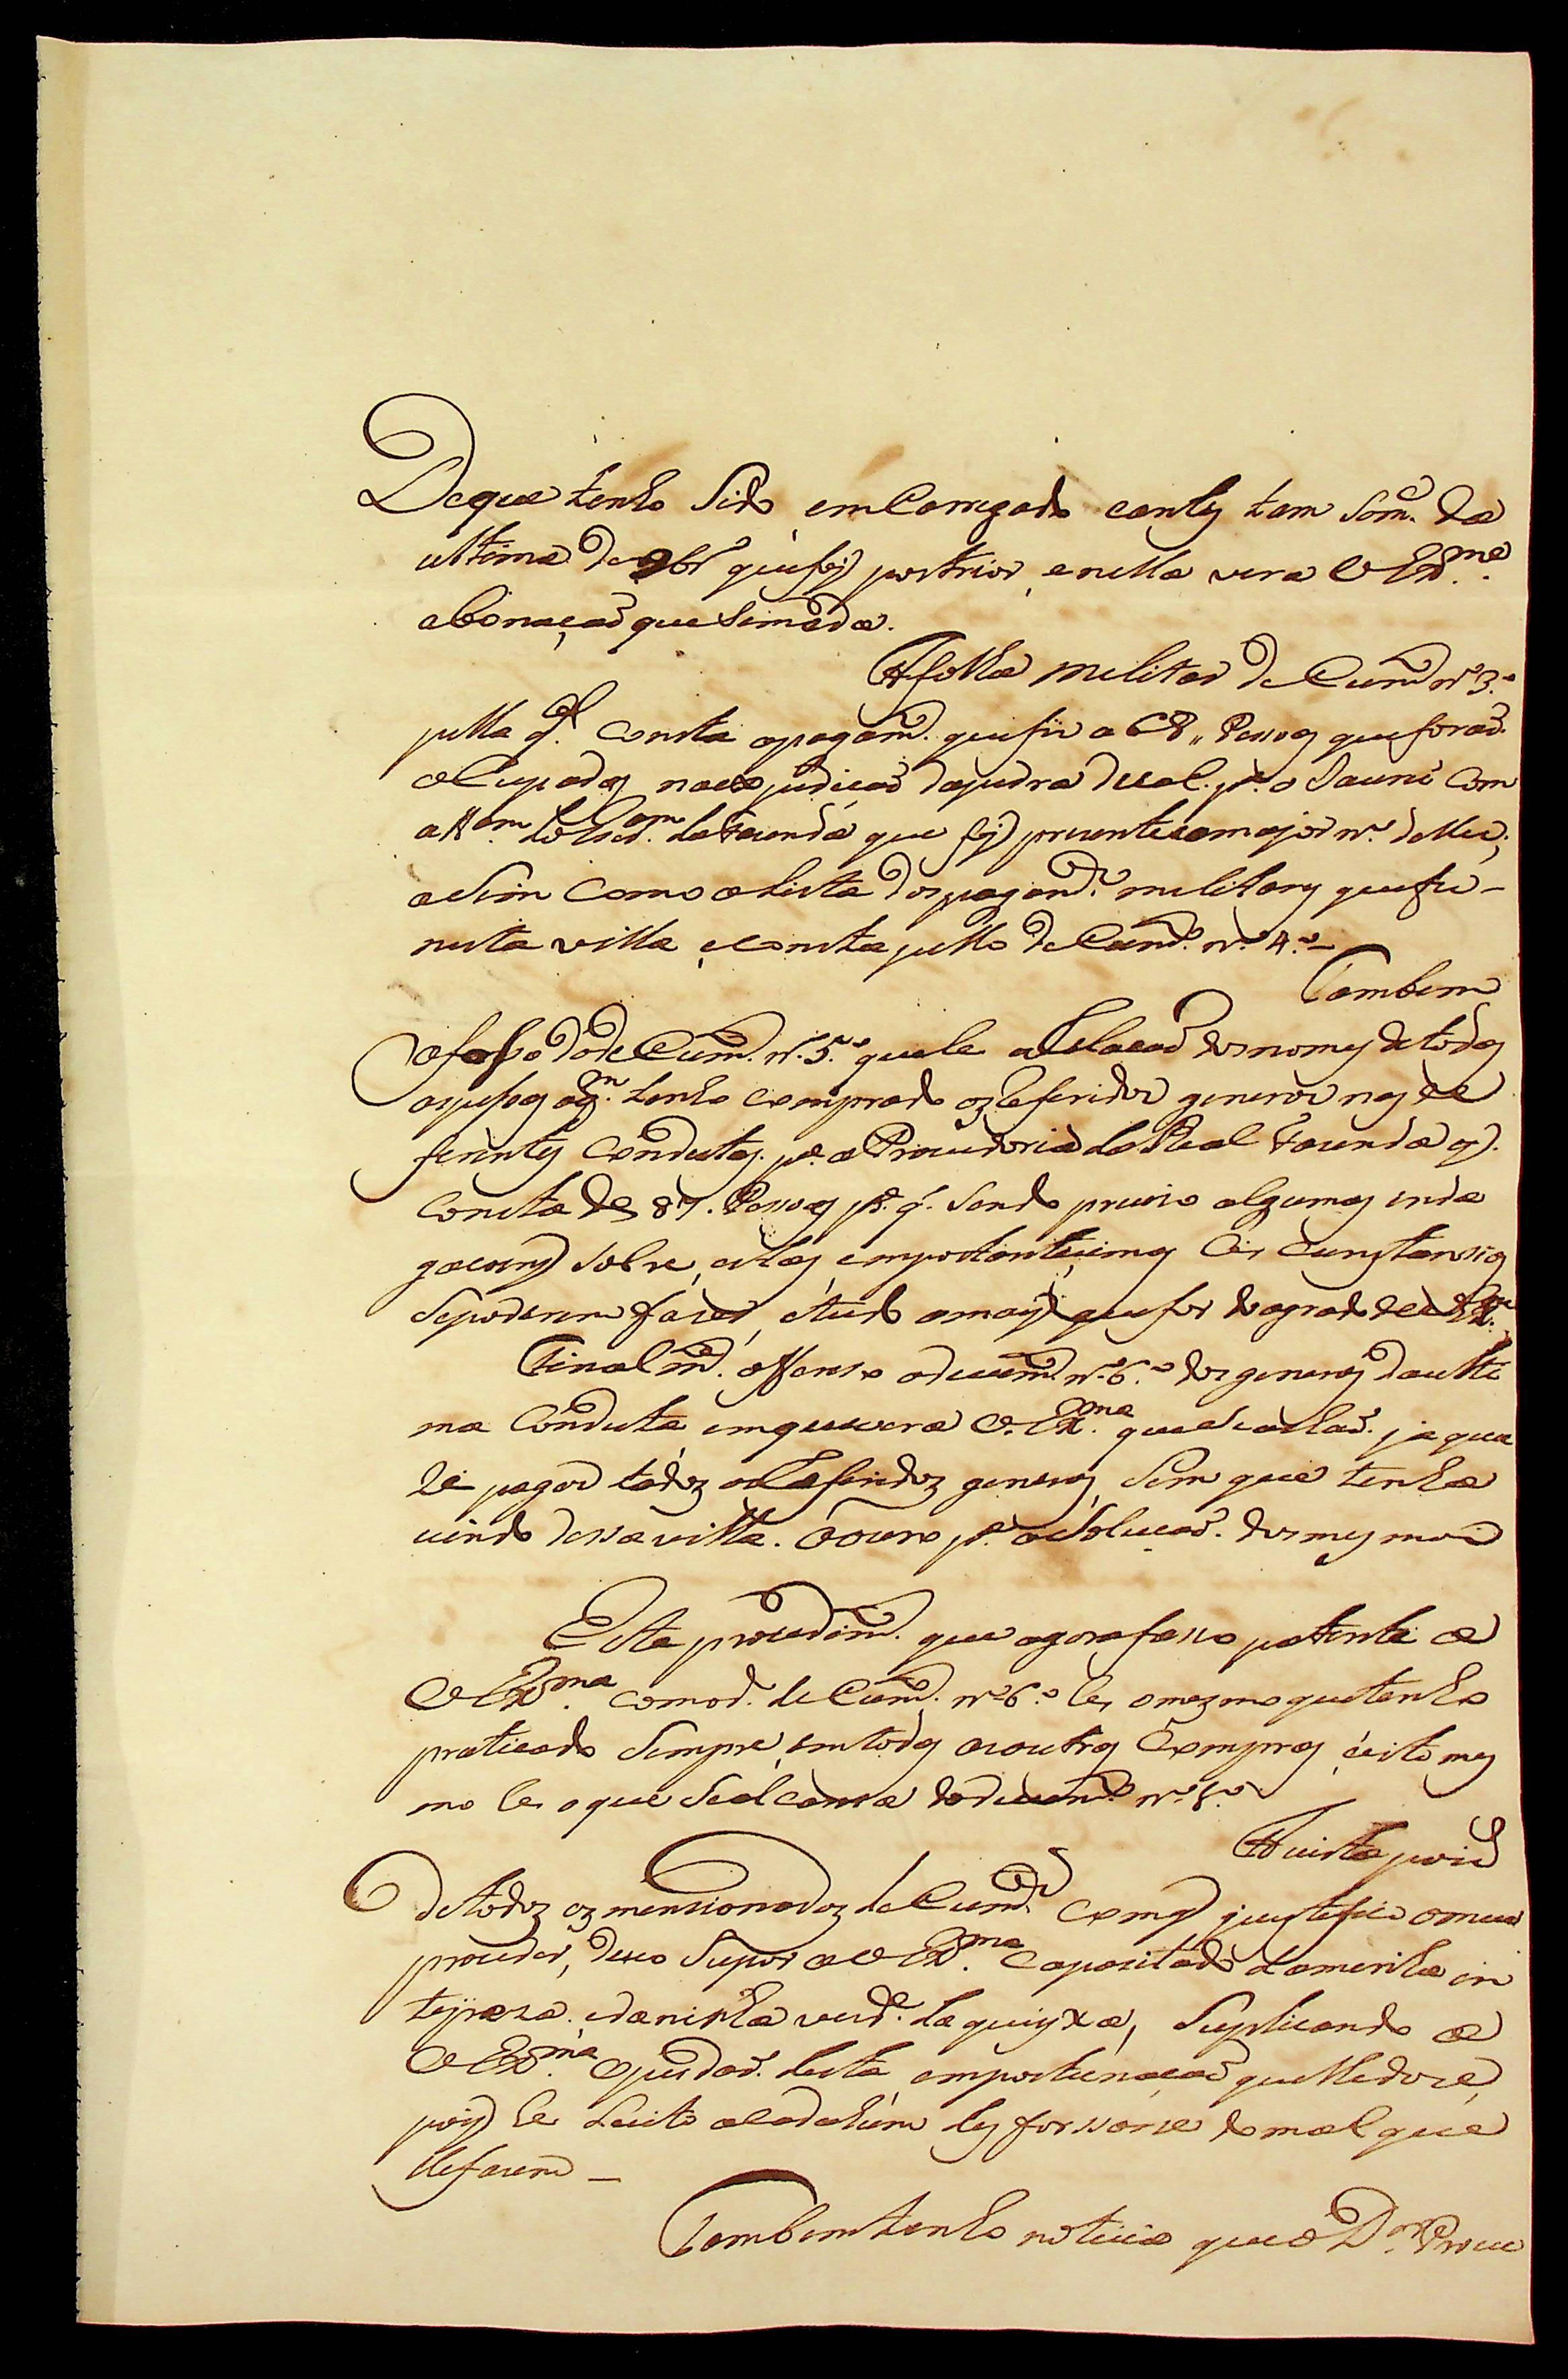 De que tenho Sido emCarregado e antes tam Som.e da
ultima de 9br.o que fes posterior, e nella vera V Ex.ma
abonaçaõ que Se me da.
A folha melitar do Cum.to n.o 3.o
pella q.l consta o pagam.to que fis a 68,, Pessoas que foraõ
oCupadas na expediçaõ da pedra de cal p.a o Sauni com
a fazenda que fes prezente o major
aSim como a Lista dos pagam.tos melitares que fis
nesta villa e consta pello doCum.to n.o 4.o
Tambem
ofereso o doCum.to n.o 5.o que he a Relaçaõ dos nomes de todas
as pesoas a q.m tenho comprado os Referidos generos nas de
ferentes Condutas p.a a Provedoria da Real Fazenda q.
Consta de 87. Pessoas p.a q. Sendo precizo algumas inda
gacoens Sobre estas emportantisimas Cir cunstansias
Se poderem fazer, e tudo o mais que for do agrado de V Ex.ma
Finalm.te offereso o documto n.o 6.o dos generos da ulti
ma Conduta em que vera V. Ex.ma que Se achaõ ja que
le pagos todos os Referidos generos, Sem que tenha
vindo dessa villa o ouro p.a a Soluçaõ dos mesmos
Este procedim.to que agora fasso patente a
V Ex.ma com o d.o doCum.to n.o 6.o he, o mezmo que tenho
praticado Sempre em todas as outras Compras, e isto mes
mo he o que Se alcansa do docum.to n.o 5.o
A vista pois
de todos os mensionados doCum.tos com q justefico o meu
proceder, devo Supor a V Ex.ma Capacitado da minha in
teyreza e da minha verd.e da queyxa, Suplicando a
V Ex.ma o perdaõ desta emportunaçaõ que lhe dou e
pois he Lecito a cada hum desforsarse do mal que
lhe fazem —
Tambem tenho noticia que o D.or Prove